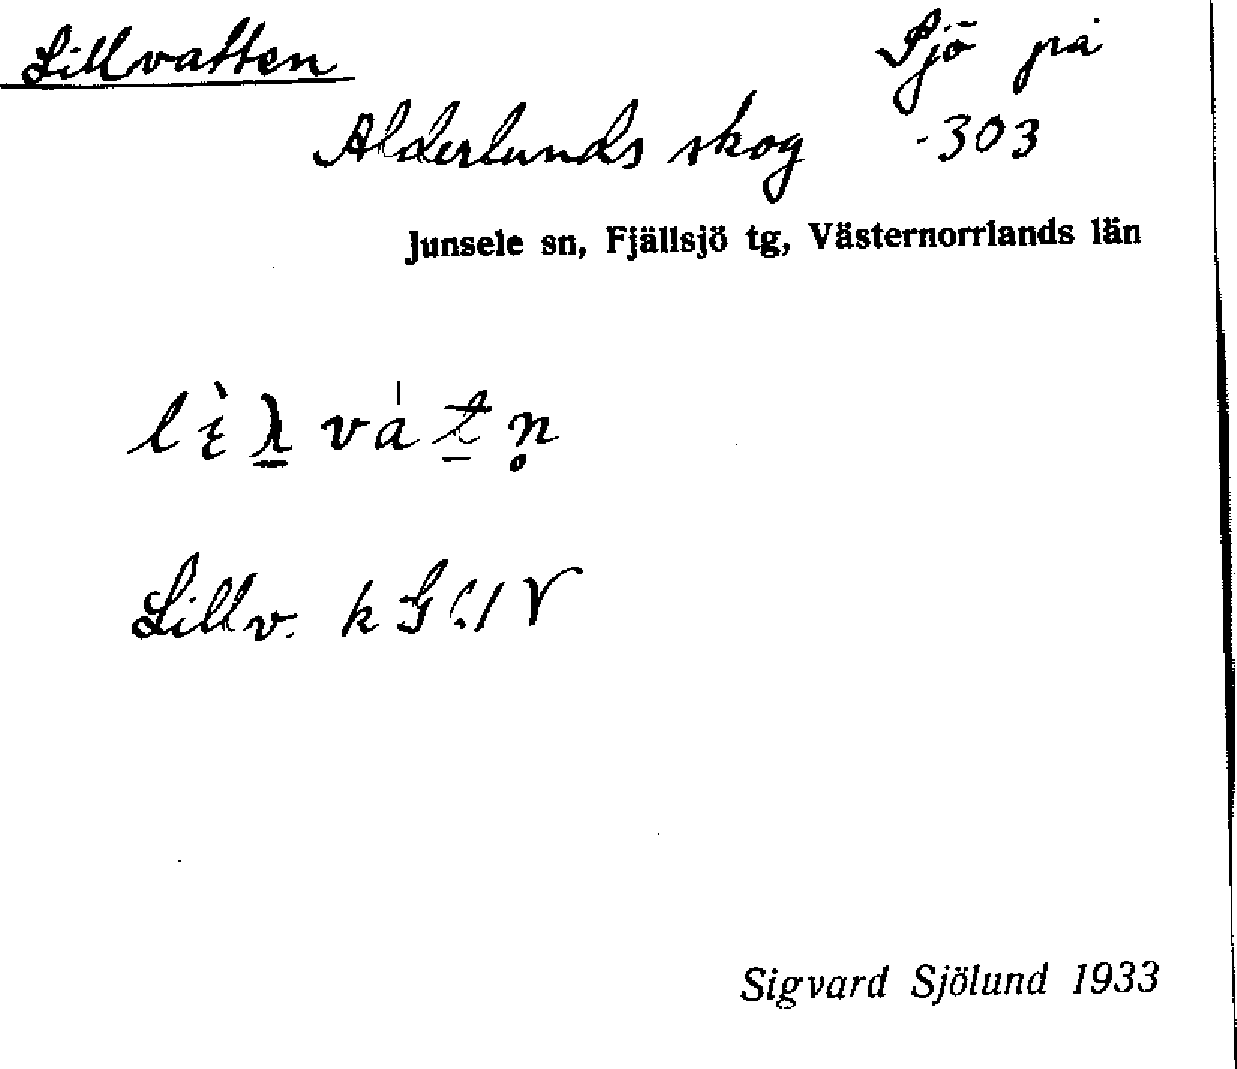 Lillvatten Sjö på
Alderlunds skog -303
Junsele sn, Fjällsjö tg, Västernorrlands län
Lillv. k
Sigvard Sjölund 1933